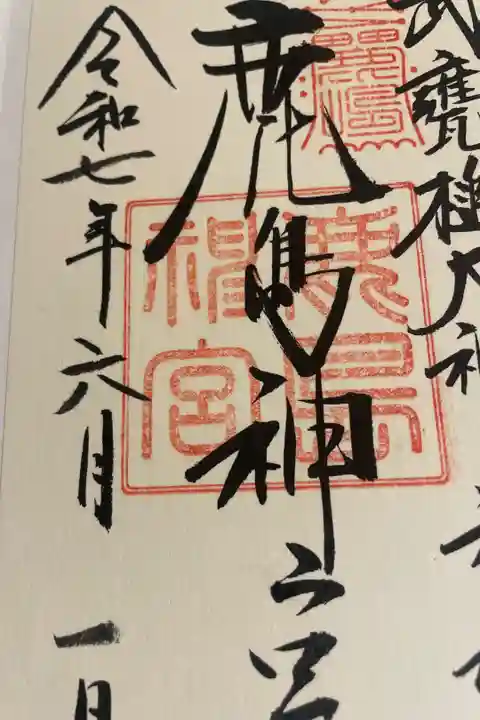 武甕槌大神
鹿島神宮
鹿島
神宮
令和七年六月一日